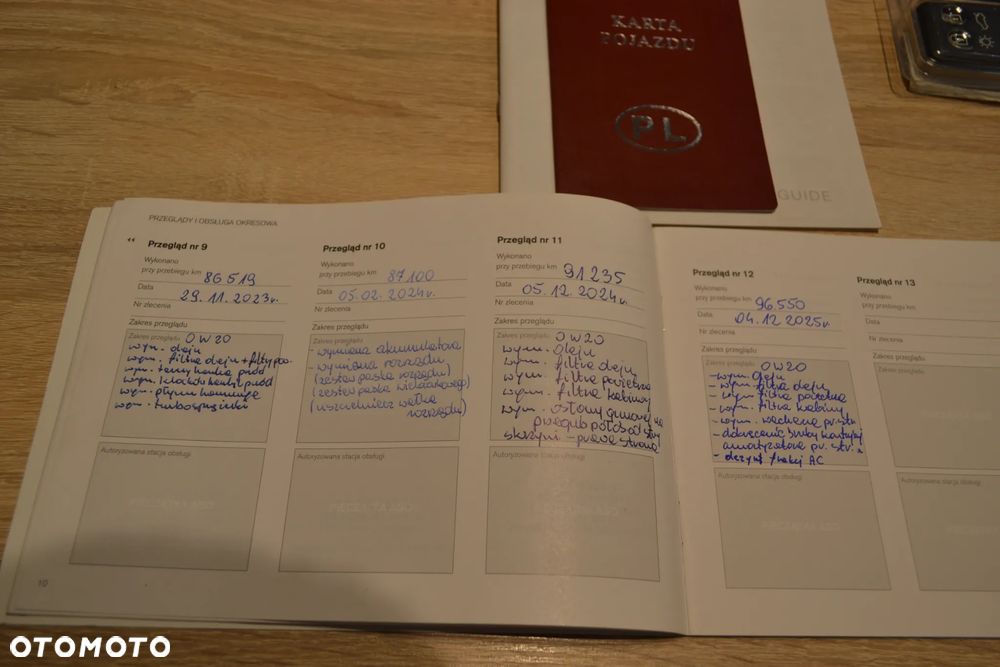 KARTA
POJAZDU
PL
GUIDE
PRZEGLĄDY I OBSŁUGA OKRESOWA
Przegląd nr 9
Wykonano
przy przebiegu km 86 519
Data 29. 11. 2023r.
Nr zlecenia
Zakres przeglądu
Zakres przeglądu 0W20
wym. oleju
wym. filtra oleju + filtry
wym. tarcz hamulc. przód
wym. klocków hamul. przód
wym. płynu hamulc.
wym. turbosprężarki
Autoryzowana stacja obsługi
10
Przegląd nr 10
Wykonano
przy przebiegu km 87 100
Data 05. 02. 2024r.
Nr zlecenia
Zakres przeglądu
Zakres przeglądu
- wymiana akumulatora
- wymiana rozrządu
(zestaw paska rozrządu)
(zestaw paska wielorowkowego)
(uszczelniacz wałka
rozrządu)
Autoryzowana stacja obsługi
Przegląd nr 11
Wykonano
przy przebiegu km 91 235
Data 05. 12. 2024r.
Nr zlecenia
Zakres przeglądu
Zakres przeglądu 0W20
wym. oleju
wym. filtra oleju
wym. filtra powietrza
wym. filtra kabiny
wym. osłony gumowej na
przegub półosi od str.
skrzyni - prawa strona
Autoryzowana stacja obsługi
Przegląd nr 12
Wykonano
przy przebiegu km 96 550
Data 04. 12. 2025r.
Nr zlecenia
Zakres przeglądu
Zakres przeglądu 0W20
- wym. oleju
- wym. filtra oleju
- wym. filtra powietrza
- wym. filtra kabiny
- wym. wahacza
- dokręcenie śruby
amortyzatora pr. str.
AC
Autoryzowana stacja obsługi
Przegląd nr 13
Wykonano
przy przebiegu km
Data
Nr zlecenia
Zakres przeglądu
Zakres przeglądu
Autoryzowana stacja obsługi
OTOMOTO